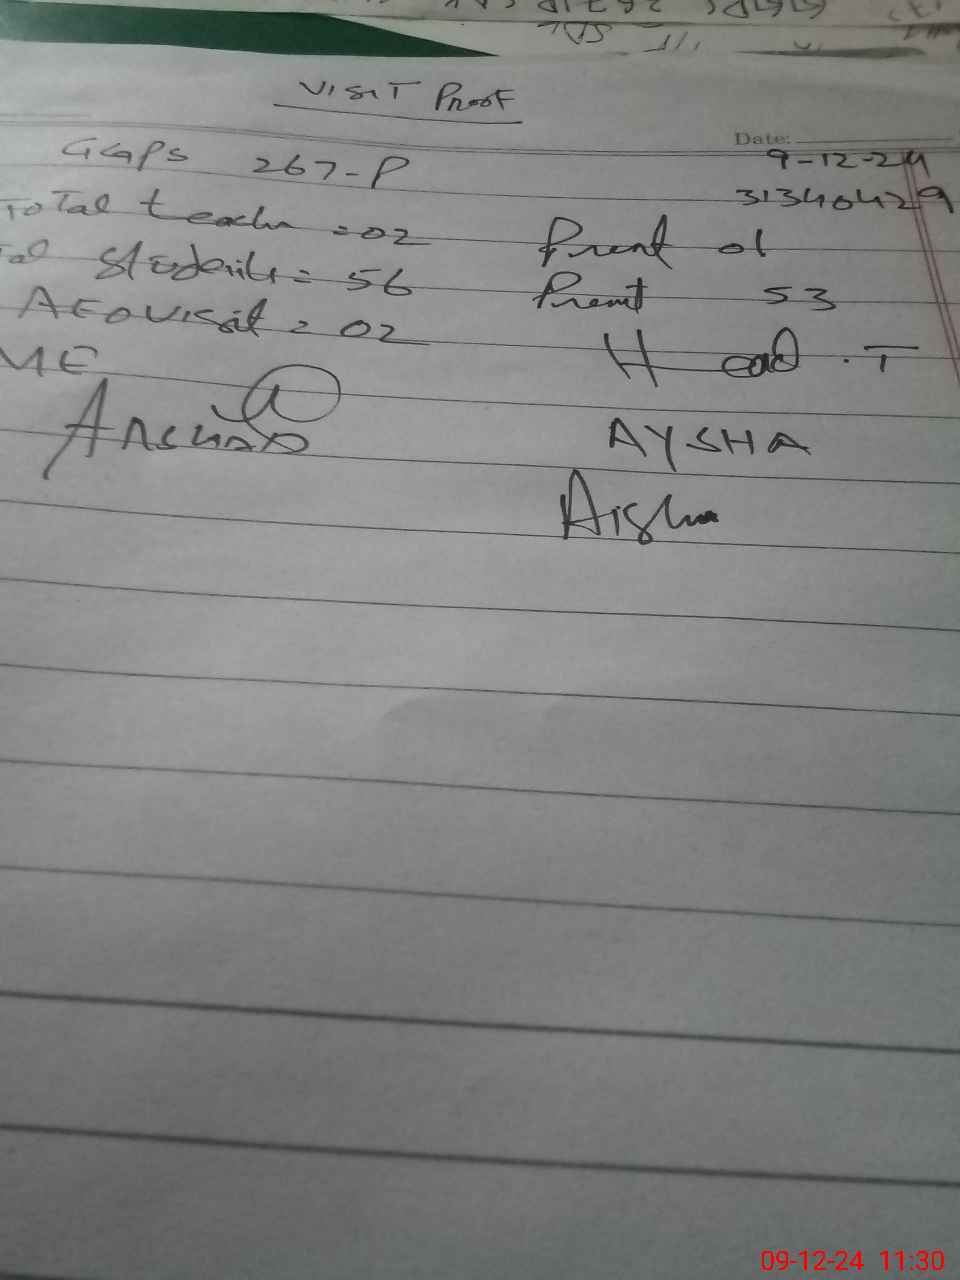 VISIT Proof
Date:
GGPS 267-P 9-12-24
31340429
ToTal teachr =02 Prent 01
Students = 56 Premt 53
AEO Visit = 02 Head .T
ME
Arshad AYSHA
Aisha
09-12-24 11:30